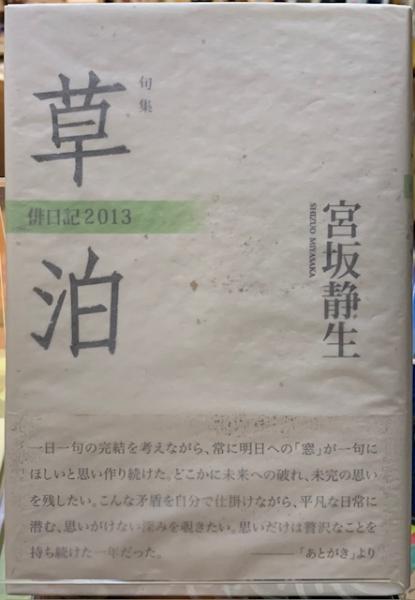 句集
草泊
俳日記2013
宮坂静生
SHIZUO MIYASAKA
一日一句の完結を考えながら、常に明日への「窓」が一句に
ほしいと思い作り続けた。どこかに未来への破れ、未完の思い
を残したい。こんな矛盾を自分で仕掛けながら、平凡な日常に
潜む、思いがけない深みを覗きたい。思いだけは贅沢なことを
持ち続けた一年だった。――「あとがき」より